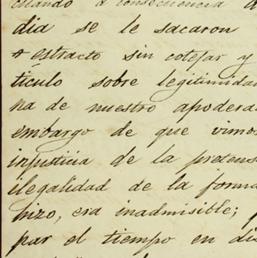 estando á consecuencia d
dia se le sacaron
estracto sin cotejar y
tículo sobre legitimidad
na de nuestro apodera
embargo de que vimos
injusticia de la pretens
ilegalidad de la forma
hizo, era inadmisible;
par el tiempo en di